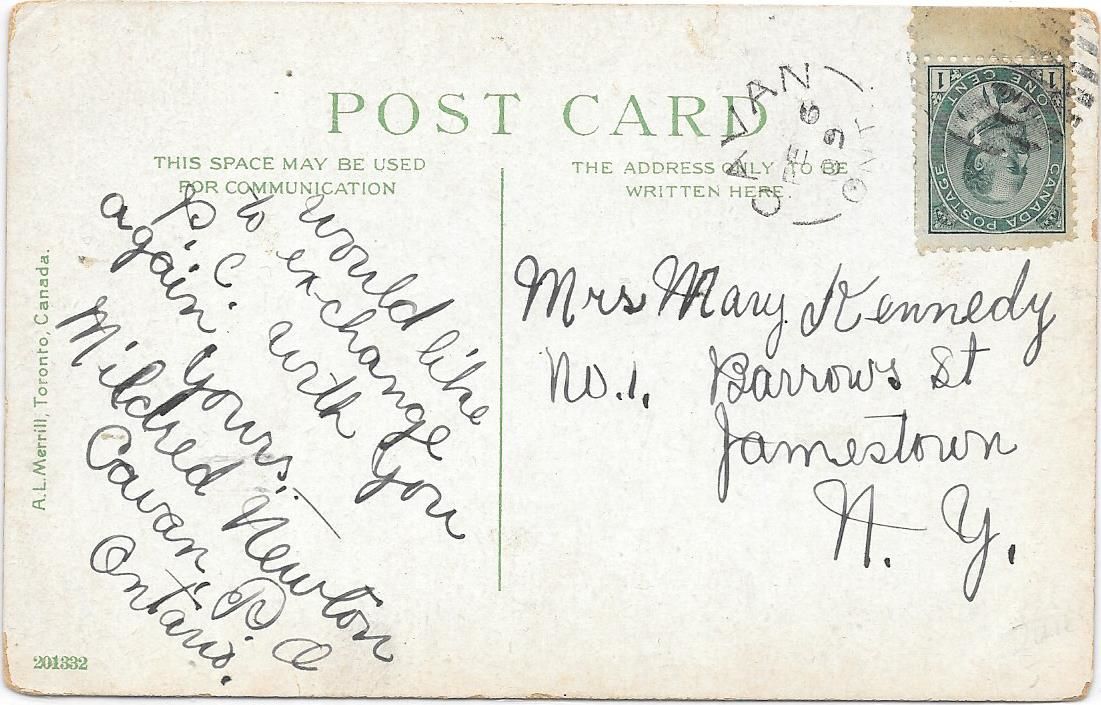 POST CARD
THIS SPACE MAY BE USED
FOR COMMUNICATION
THE ADDRESS ONLY TO BE
WRITTEN HERE
CAVAN
FE 6
09
ONT
CANADA POSTAGE
ONE CENT
1 1
would like
to exchange
P. C. with You
again Yours.
Mildred Newton
Cavan, P O
Ontario.
Mrs Mary Kennedy
No. 1. Barrows St
Jamestown
N. Y.
A.L. Merrill, Toronto, Canada.
201332